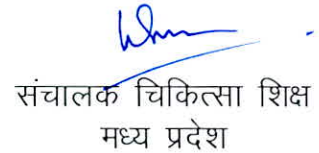 संचालक चिकित्सा शिक्ष
मध्य प्रदेश